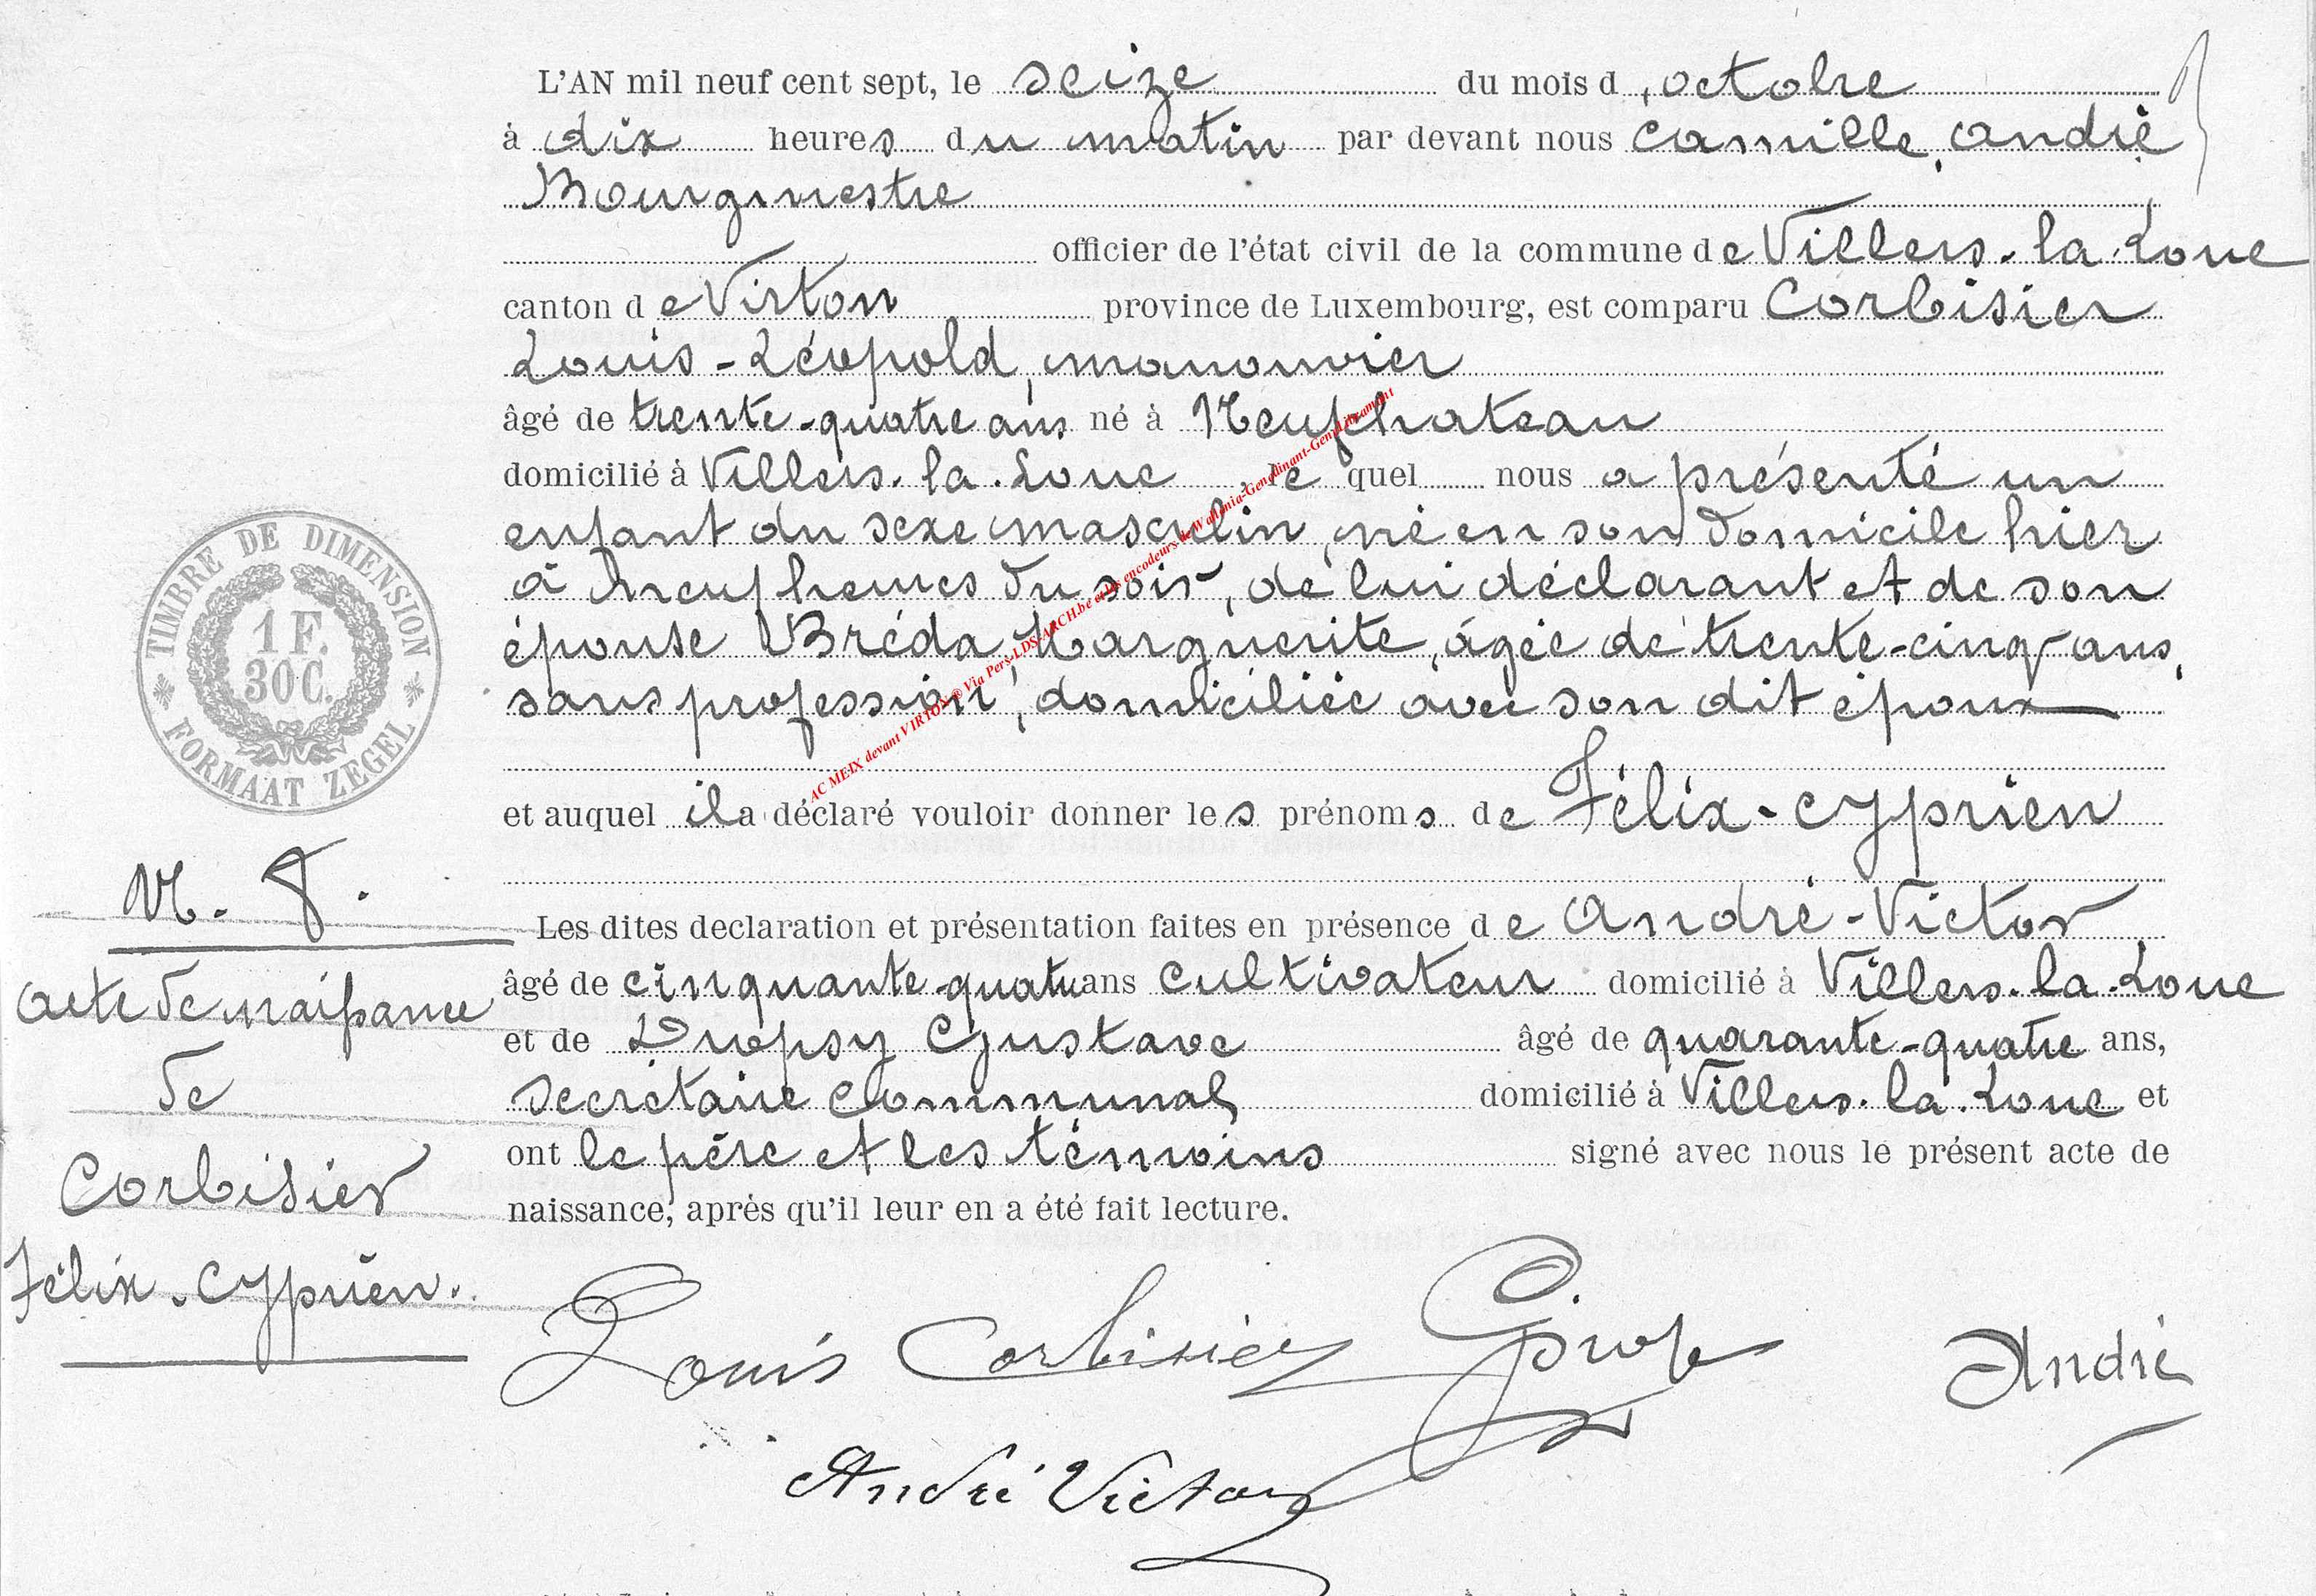 L'AN mil neuf cent sept, le seize du mois d'octobre
à dix heures du matin par devant nous Camille, André
Bourgmestre
officier de l'état civil de la commune de Villers-la-Loue
canton de Virton province de Luxembourg, est comparu Corbisier
Louis-Léopold, manouvrier
âgé de trente-quatre ans né à Neufchateau
domicilié à Villers-la-Loue, le quel nous a présenté un
enfant du sexe masculin, né en son domicile hier
à neuf heures du soir, de lui déclarant et de son
épouse Bréda, Marguerite, âgée de trente-cinq ans,
sans profession, domiciliée avec son dit époux
et auquel il a déclaré vouloir donner les prénoms de Félix-Cyprien
Les dites declaration et présentation faites en présence de André-Victor
âgé de cinquante-quatre ans cultivateur domicilié à Villers-la-Loue
et de Dropsy Gustave âgé de quarante-quatre ans,
secrétaire communal domicilié à Villers-la-Loue et
ont le père et les témoins signé avec nous le présent acte de
naissance, après qu'il leur en a été fait lecture.
N. 8.
Acte de naissance
de
Corbisier
Félix-Cyprien.
TIMBRE DE DIMENSION
1 F.
30 C.
FORMAAT ZEGEL
Louis Corbisier
André
André Victor
AC MEIX devant VIRTON @ Via Pers-LDS-ARCH.be et les encodeurs de Wallonia-Genedinant-GeneLibramont